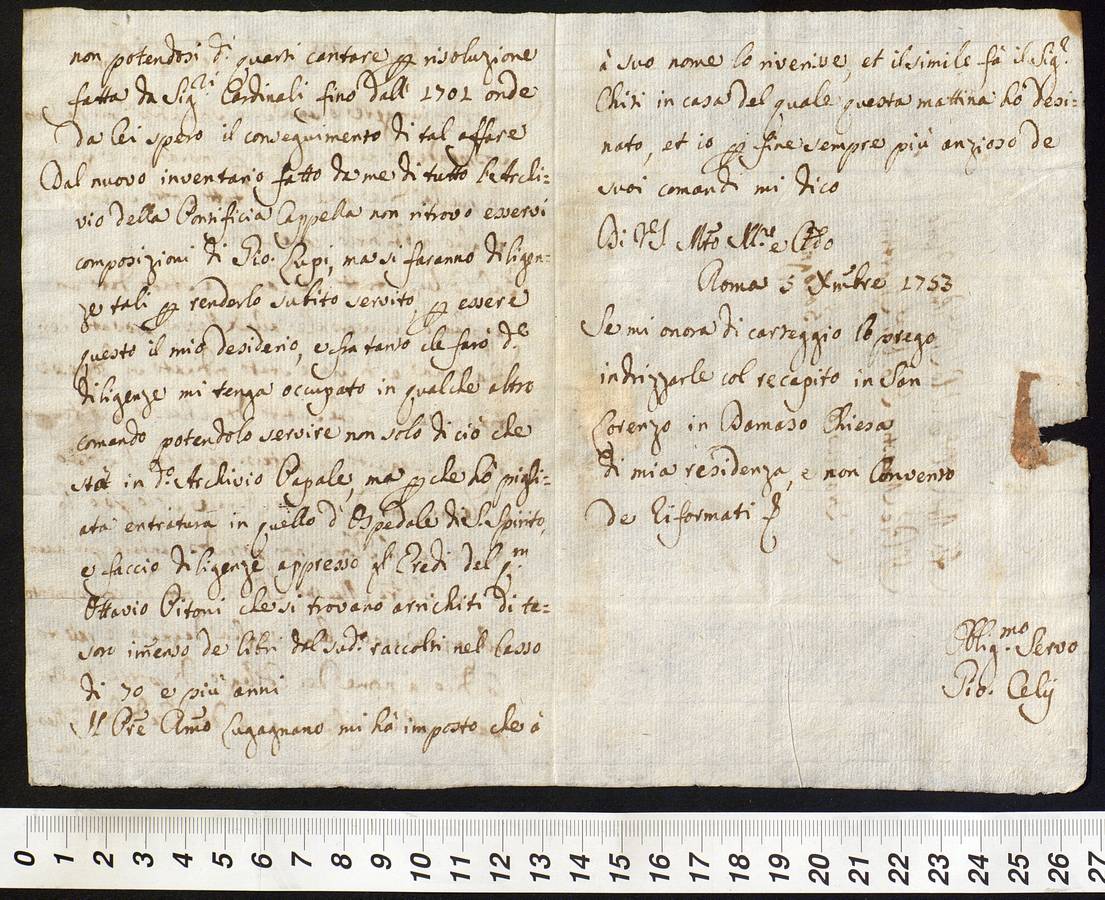 non potendosi d.i questi cantare p risoluzione
fatta da Sig.ri Cardinali fino dall' 1701 onde
da lei spero il conseguimento di tal affare
Dal nuovo inventario fatto da me di tutto l'Archi=
vio della Pontificia Cappella non ritrovo esservi
composizioni di Gio. Lupi, ma si faranno diligen=
ze tali p renderlo subito servito, p essere
questo il mio desiderio, e fra tanto che farò d.e
diligenze mi tenga occupato in qualche altro
comando potendolo servire non solo di ciò che
stà in d.o Archivio Papale, ma pche hò pigli=
ata entratura in quello d' Ospedale di S. Spirito,
e faccio diligenze appresso gl' Eredi del q.m
Ottavio Pitoni che si trovano arrichiti di te=
soro imenso de libri dal sud.o raccolti nel lasso
di 70 e più anni
Il Pre Amo Lugagnano mi hà imposto che à
à suo nome lo riverisse, et il simile fà il Sig.r
Chiti in casa del quale questa mattina hò desi=
nato, et io p fine sempre più anzioso de
suoi comandi mi dico
Di V.S. Mto Ill.re e
Roma 5 Xmbre 1753
Se mi onora di carteggio lo prego
indrizzarle col recapito in San
Lorenzo in Damaso Chiesa
di mia residenza, e non Convento
de Riformati
Obblig.mo Servo
Gio. Celij
27 26 25 24 23 22 21 20 19 18 17 16 15 14 13 12 11 10 9 8 7 6 5 4 3 2 1 0